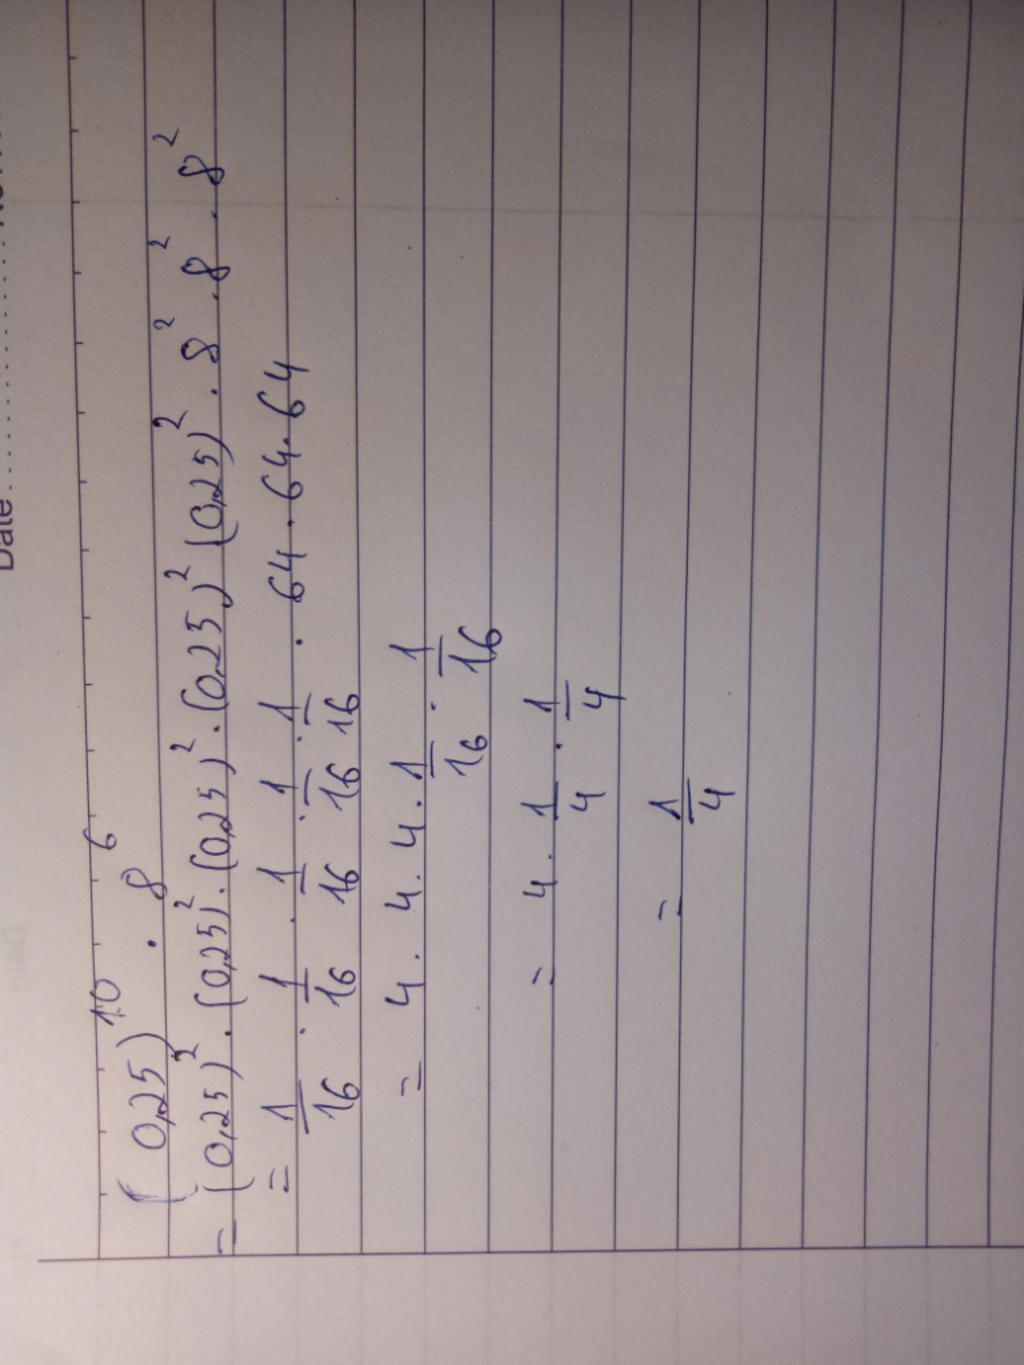 Date..............No.....
(0,25)^10 . 8^6
= (0,25)^2 . (0,25)^2 . (0,25)^2 . (0,25)^2 (0,25)^2 . 8^2 . 8^2 . 8^2
= 1/16 . 1/16 . 1/16 . 1/16 . 1/16 . 64 . 64 . 64
= 4 . 4 . 4 . 1/16 . 1/16
= 4 . 1/4 . 1/4
= 1/4